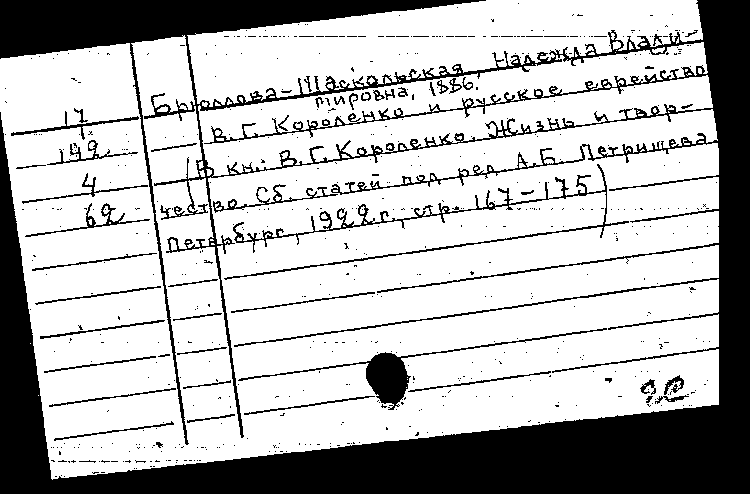 17
1
142
4
62
Брюллова-Шаскольская, Надежда Влади-
мировна, 1886.
В. Г. Короленко и русское еврейство
(В кн.: В. Г. Короленко. Жизнь и твор-
чество. Сб. статей под ред. А. Б. Петрищева.
Петербург, 1922 г., стр. 167-175)